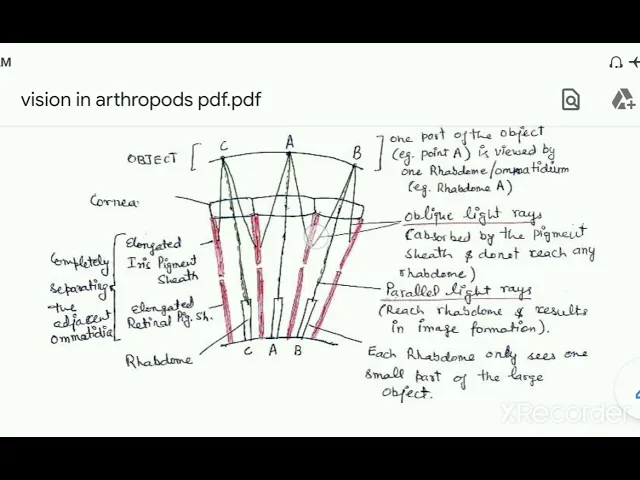 AM
vision in arthropods pdf.pdf
C
A
B
OBJECT
one part of the object
(eg. point A) is viewed by
one Rhabdome/ommatidium
(eg. Rhabdome A)
Cornea
oblique light rays
(absorbed by the pigment
sheath & donot reach any
rhabdome)
Completely
separating
the
adjacent
ommatidia
Elongated
Iris Pigment
Sheath
Elongated
Retinal Pig. Sh.
Parallel light rays
(Reach rhabdome & results
in image formation).
Rhabdome
C A B
Each Rhabdome only sees one
small part of the large
object.
XRecorder